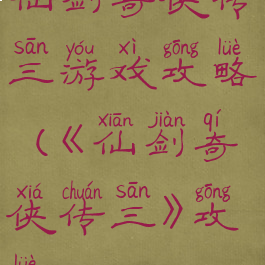 仙剑奇侠传
sān yóu xì gōng lüè
三游戏攻略
xiān jiàn qí
(《仙剑奇
xiá chuán sān gōng
侠传三》攻
lüè